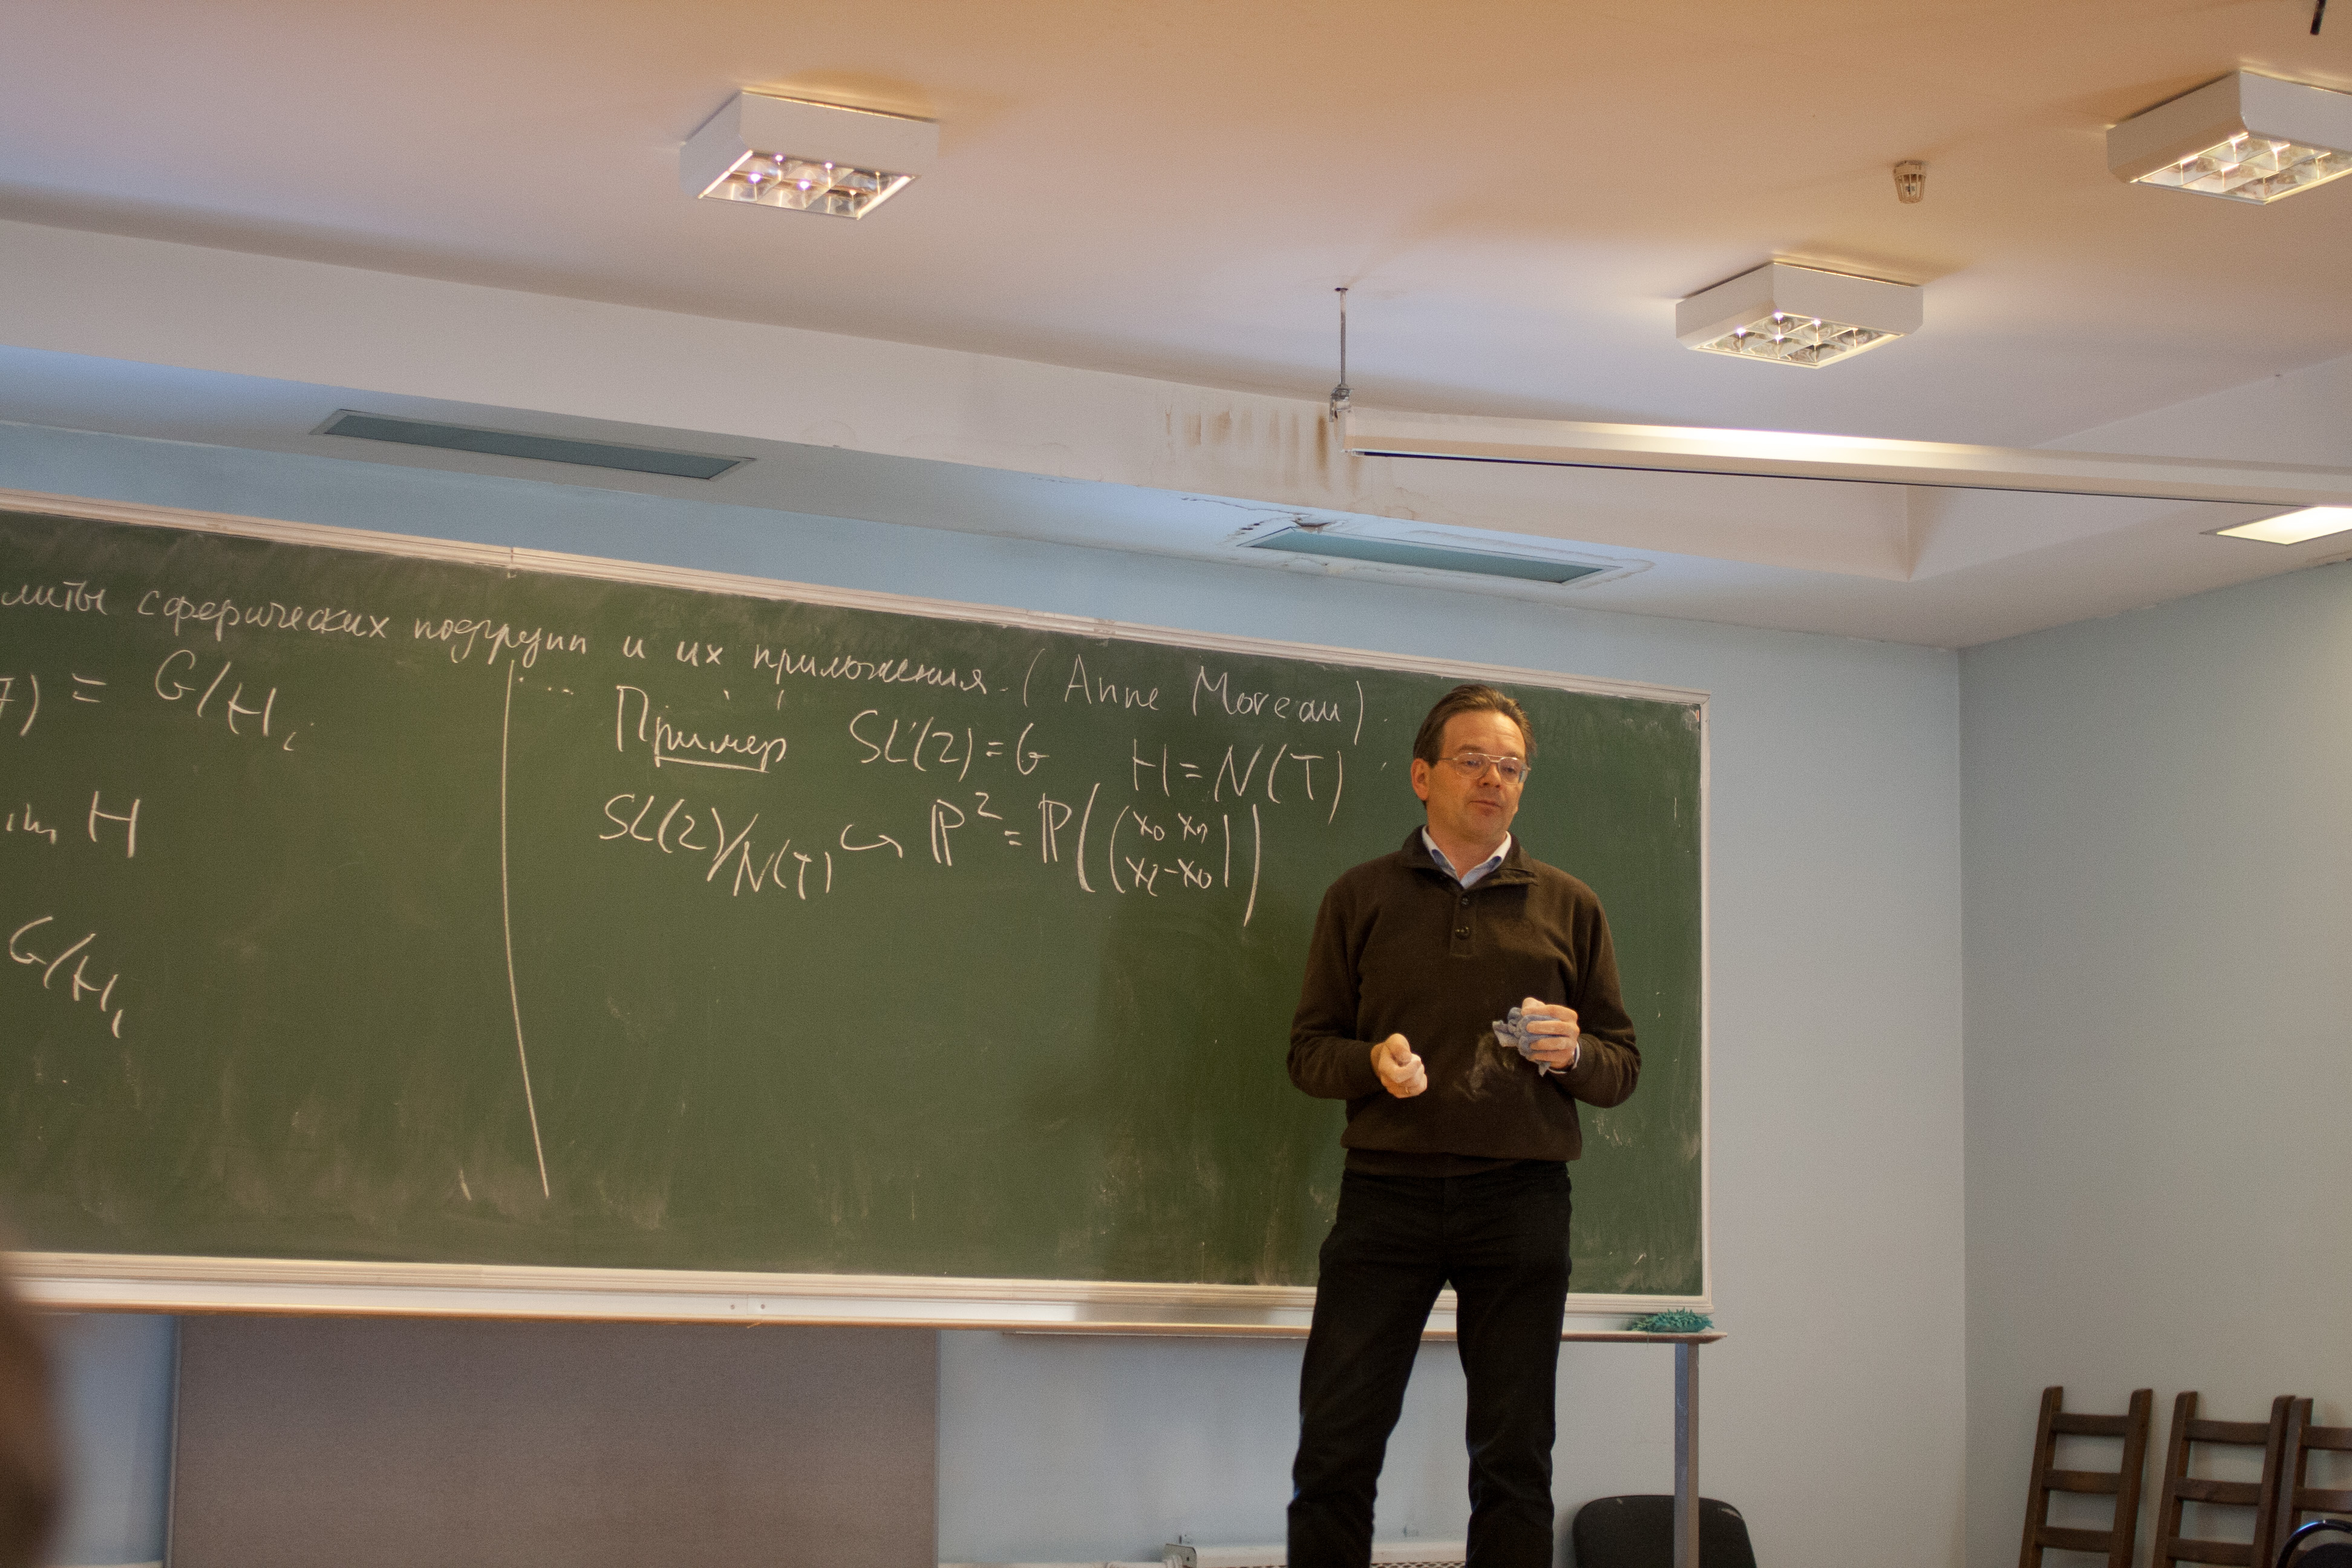 сферических подгрупп и их приложения. (Anne Moreau).
) = G/H,
in H
G/H,
Пример SL(2) = G H = N(T)
SL(2)/N(T) ↪ ℙ² = ℙ((x₀ x₁
x₂ -x₀))